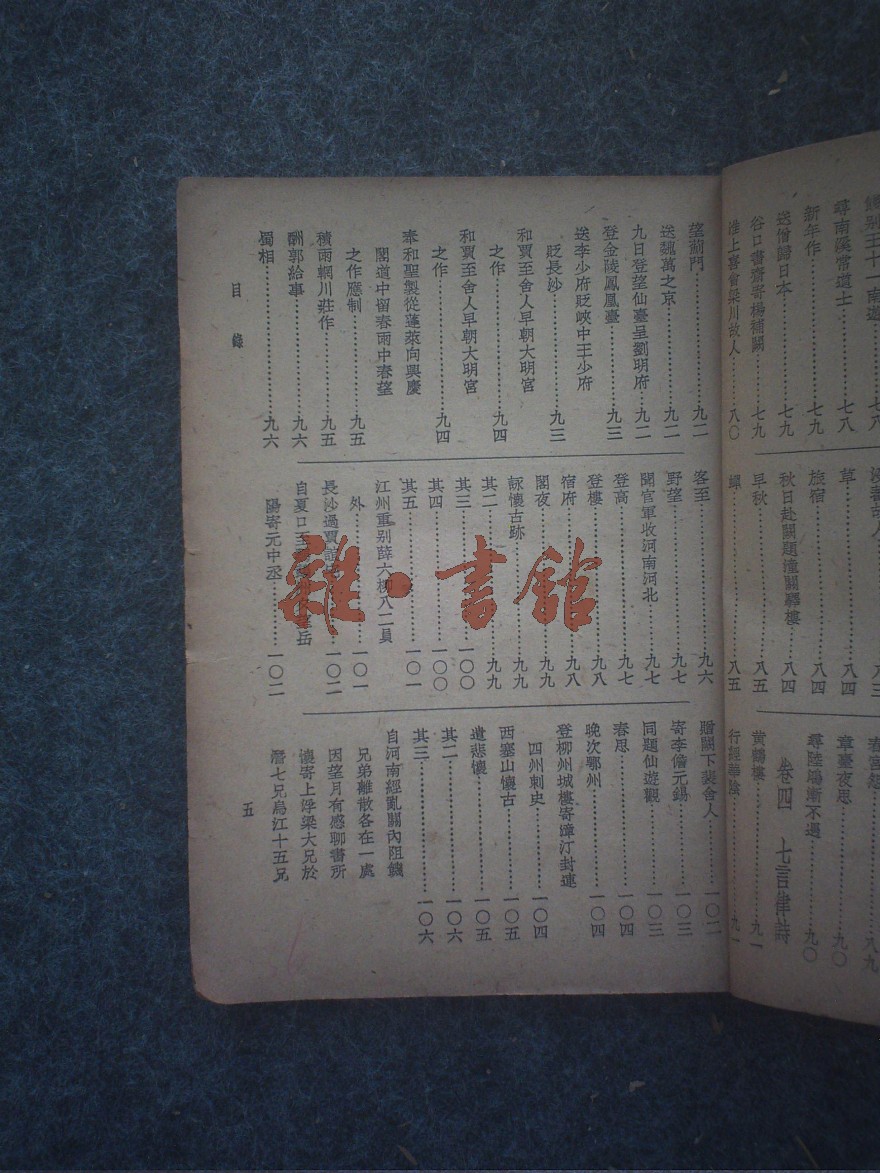 送僧歸日本………七九
谷口書齋寄楊補闕………七九
淮上喜會梁川故人………八〇
新年作………七九
尋南溪常道士………七八
草………八四
旅宿………八四
秋日赴闕題潼關驛樓………八四
早秋………八五
蟬………八五
章臺夜思………九〇
尋陸鴻漸不遇………九〇
卷四 七言律詩
黃鶴樓………九一
行經華陰………九一
望薊門………九二
送魏萬之京………九二
九日登望仙臺呈劉明府………九二
登金陵鳳凰臺………九三
送李少府貶峽中王少府
貶長沙………九三
和賈至舍人早朝大明宮
之作………九四
和賈至舍人早朝大明宮
之作………九四
奉和聖製從蓬萊向興慶
閣道中留春雨中春望
之作應制………九五
積雨輞川莊作………九五
酬郭給事………九六
蜀相………九六
客至………九六
野望………九七
聞官軍收河南河北………九七
登高………九七
登樓………九八
宿府………九八
閣夜………九九
詠懷古跡………九九
其二………九九
其三………一〇〇
其四………一〇〇
其五………一〇一
江州重別薛六柳八二員
外………一〇一
長沙過賈誼………一〇二
自夏口至岳
陽寄元中丞………一〇二
贈闕下裴舍人………一〇二
寄李儋元錫………一〇三
同題仙遊觀………一〇三
春思………一〇四
晚次鄂州………一〇四
登柳州城樓寄漳汀封連
四州刺史………一〇四
西塞山懷古………一〇五
遣悲懷………一〇五
其二………一〇六
其三………一〇六
自河南經亂關內阻饑
兄弟離散各在一處
因望月有感聊書所
懷寄上浮梁大兄於
潛七兄烏江十五兄
目錄
五
雜·書館